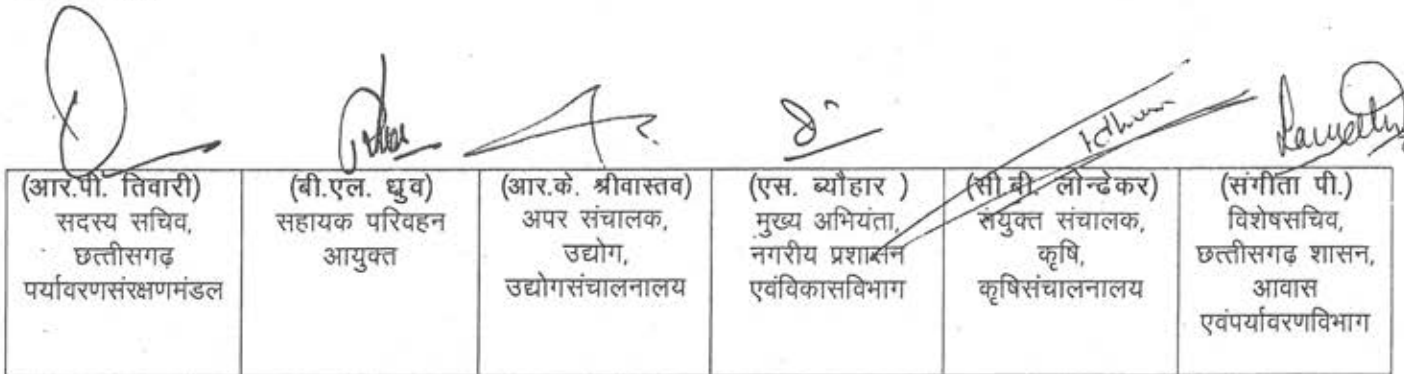 (आर.पी. तिवारी)
सदस्य सचिव,
छत्तीसगढ़
पर्यावरणसंरक्षणमंडल
(बी.एल. ध्रुव)
सहायक परिवहन
आयुक्त
(आर.के. श्रीवास्तव)
अपर संचालक,
उद्योग,
उद्योगसंचालनालय
(एस. ब्यौहार )
मुख्य अभियंता,
नगरीय प्रशासन
एवंविकासविभाग
(सी.बी. लोन्ढेकर)
संयुक्त संचालक,
कृषि,
कृषिसंचालनालय
(संगीता पी.)
विशेषसचिव,
छत्तीसगढ़ शासन,
आवास
एवंपर्यावरणविभाग